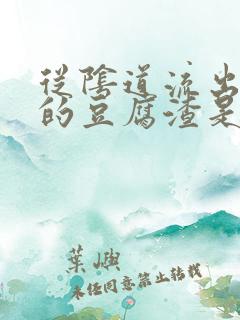 從陰道流出
的豆腐渣是
葉嶼
未经同意禁止转载